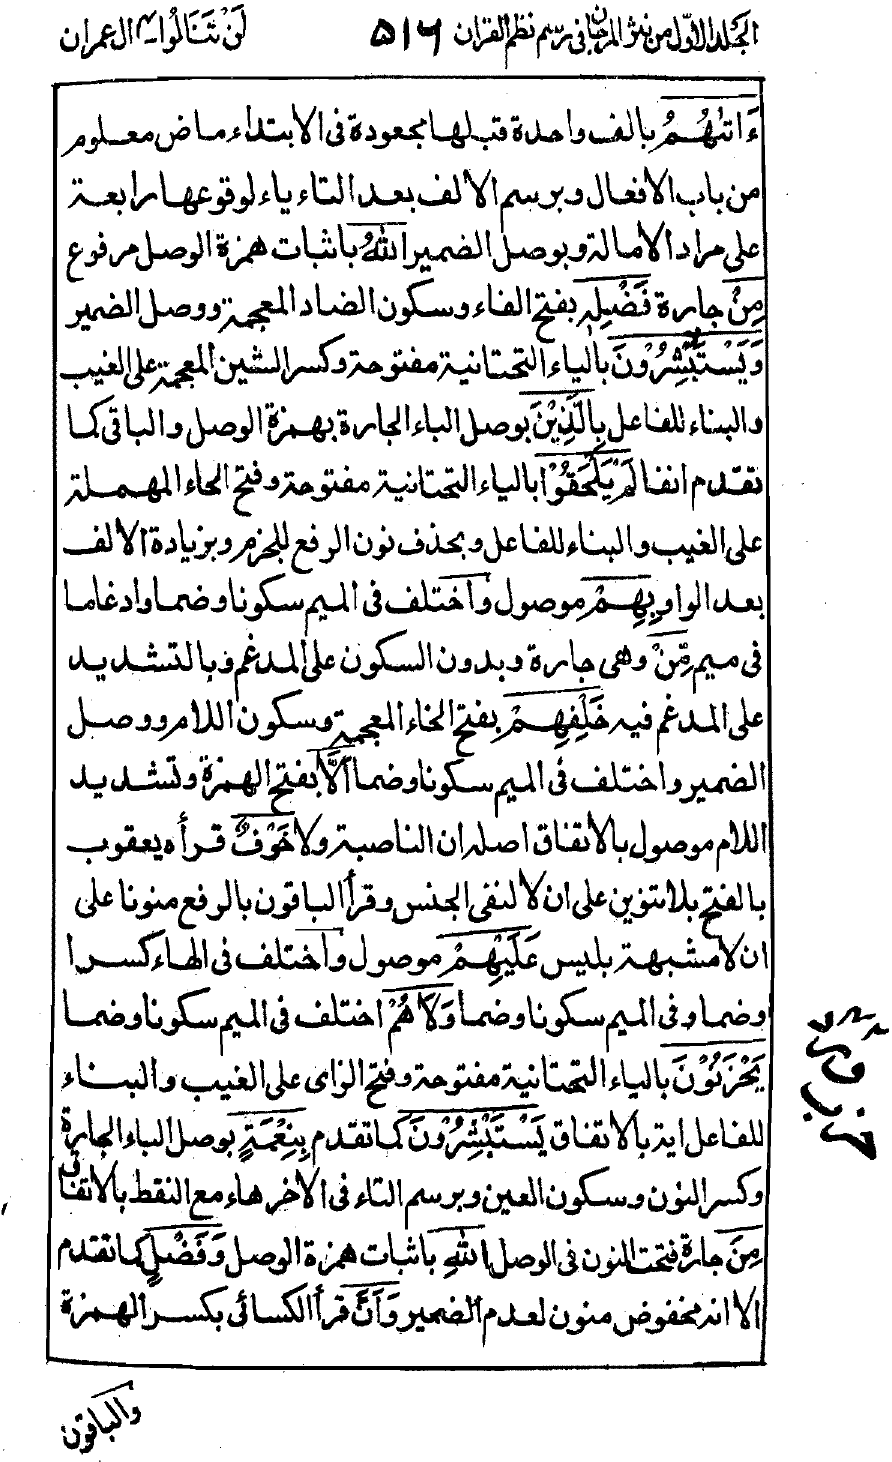 الجلد الاول من نثر المرجان فى رسم نظم القران ٥١٦ لَنْ تَنَالُوا ٤ ال عمران
ءَاتٰىهُمُ بالف واحدة قبلها مجعودة فى الابتداء ماض معلوم
من باب الافعال وبرسم الالف بعد التاء ياء لوقوعها رابعة
على مراد الامالة وبوصل الضمير اللّٰهُ باثبات همزة الوصل مرفوع
مِنْ جارة فَضْلِهٖ بفتح الفاء وسكون الضاد المعجمة ووصل الضمير
وَيَسْتَبْشِرُوْنَ بالياء التحتانية مفتوحة وكسر الشين المعجمة على الغيب
والبناء للفاعل بِالَّذِيْنَ بوصل الباء الجارة بهمزة الوصل والباقى كما
تقدم انفا لَمْ يَلْحَقُوْا بالياء التحتانية مفتوحة وفتح الحاء المهملة
على الغيب والبناء للفاعل وبحذف نون الرفع للجزم وبزيادة الالف
بعد الواو بِهِمْ موصول واختلف فى الميم سكونا وضما وادغاما
فى ميم مِّنْ وهى جارة وبدون السكون على المدغم وبالتشديد
على المدغم فيه خَلْفِهِمْ بفتح الخاء المعجمة وسكون اللام ووصل
الضمير واختلف فى الميم سكونا وضما اَلَّا بفتح الهمزة وتشديد
اللام موصول بالاتفاق اصله ان الناصبة ولا خَوْفٌ قرأه يعقوب
بالفتح بلا تنوين على ان لا لنفى الجنس وقرأ الباقون بالرفع منونا على
ان لا مشبهة بليس عَلَيْهِمْ موصول واختلف فى الهاء كسرا
وضما وفى الميم سكونا وضما وَلَا هُمْ اختلف فى الميم سكونا وضما
يَحْزَنُوْنَ بالياء التحتانية مفتوحة وفتح الزاى على الغيب والبناء
للفاعل اية بالاتفاق يَسْتَبْشِرُوْنَ كما تقدم بِنِعْمَةٍ بوصل الباء الجارة
وكسر النون وسكون العين وبرسم التاء فى الاخر هاء مع النقط بالاتفاق
مِنَ جارة فتحت النون فى الوصل اللّٰهِ باثبات همزة الوصل وَفَضْلٍ كما تقدم
الا انه مخفوض منون لعدم الضمير وَاَنَّ قرأ الكسائى بكسر الهمزة
والباقون